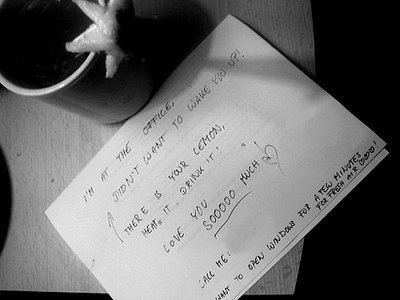 I'M AT THE OFFICE,
DIDN'T WANT TO WAKE YOU UP!
THERE IS YOUR LEMON,
HEAT IT, DRINK IT!
LOVE YOU SOOOOO MUCH
CALL ME:
WANT TO OPEN WINDOWS FOR A FEW MINUTES
FOR FRESH AIR